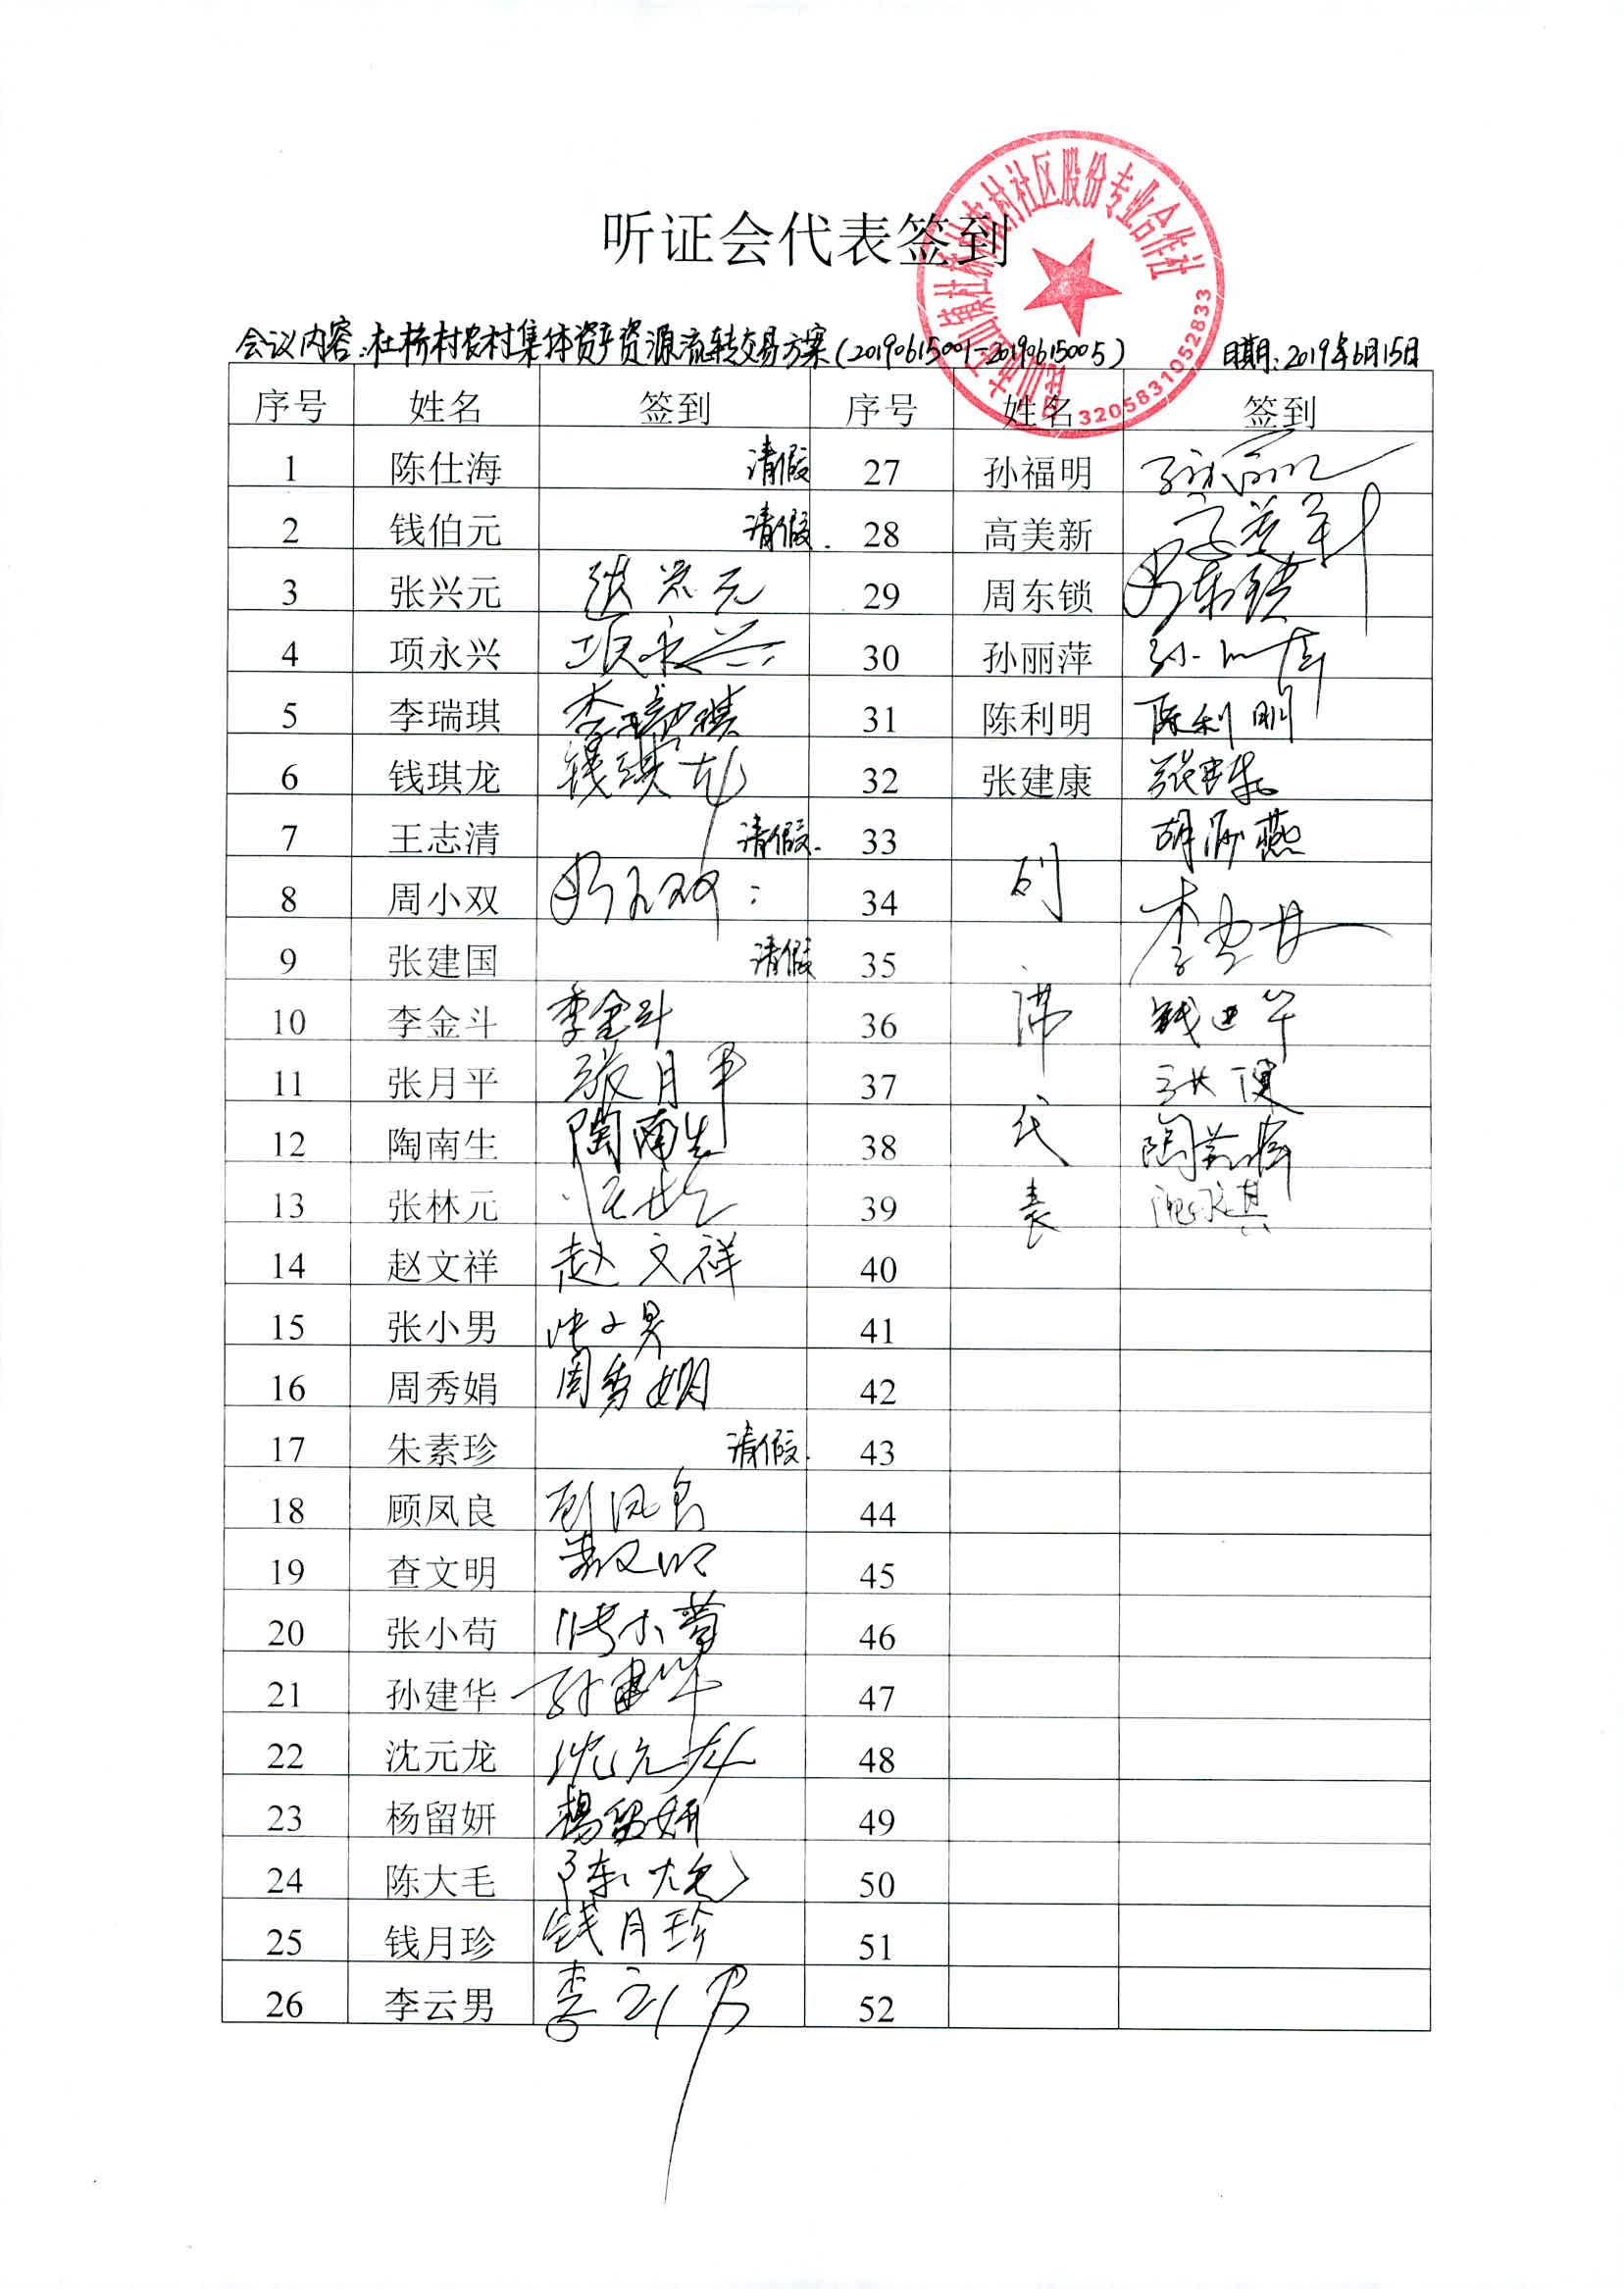 听证会代表签到
会议内容:杜桥村农村集体资产资源流转交易方案(20190615001-20190615005) 日期:2019年6月15日
序号 姓名 签到 序号 姓名 签到
1 陈仕海 请假 27 孙福明 孙福明
2 钱伯元 请假. 28 高美新 高美新
3 张兴元 张兴元 29 周东锁 周东锁
4 项永兴 项永兴 30 孙丽萍 孙丽萍
5 李瑞琪 李瑞琪 31 陈利明 陈利明
6 钱琪龙 钱琪龙 32 张建康 张建康
7 王志清 请假. 33
8 周小双 周小双 34 列
9 张建国 请假 35
10 李金斗 李金斗 36 席
11 张月平 张月平 37
12 陶南生 陶南生 38 代
13 张林元 39 表
14 赵文祥 赵文祥 40
15 张小男 张小男 41
16 周秀娟 周秀娟 42
17 朱素珍 请假. 43
18 顾凤良 顾凤良 44
19 查文明 查文明 45
20 张小苟 46
21 孙建华 孙建华 47
22 沈元龙 沈元龙 48
23 杨留妍 杨留妍 49
24 陈大毛 陈大毛 50
25 钱月珍 钱月珍 51
26 李云男 李云男 52
3205831052833